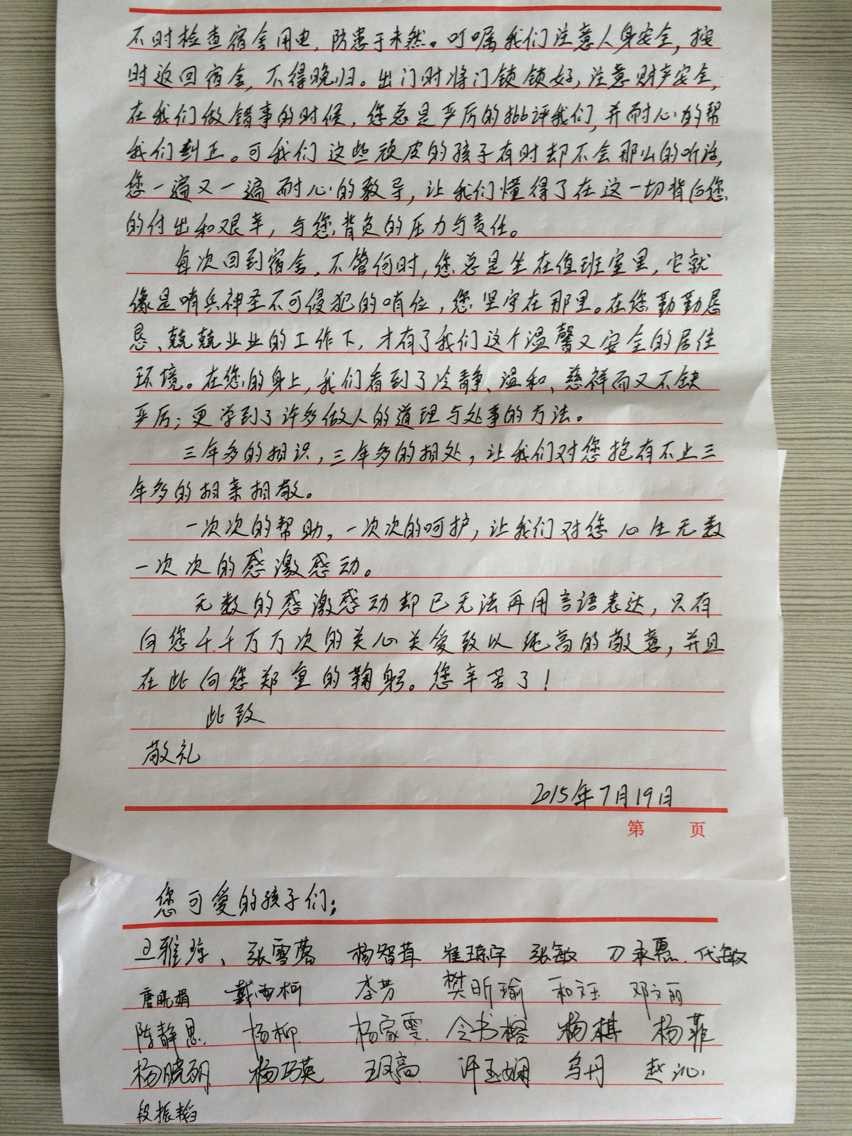 不时检查宿舍用电，防患于未然。叮嘱我们注意人身安全，按
时返回宿舍，不得晚归。出门时将门锁锁好，注意财产安全，
在我们做错事的时候，您总是严厉的批评我们，并耐心的帮
我们纠正。可我们这些顽皮的孩子有时却不会那么的听话，
您一遍又一遍耐心的教导，让我们懂得了在这一切背后您
的付出和艰辛，与您背负的压力与责任。
每次回到宿舍，不管何时，您总是坐在值班室里，它就
像是哨兵神圣不可侵犯的哨位，您坚守在那里。在您勤勤恳
恳、兢兢业业的工作下，才有了我们这个温馨又安全的居住
环境。在您的身上，我们看到了冷静、温和、慈祥而又不缺
严厉；更学到了许多做人的道理与处事的方法。
三年多的相识，三年多的相处，让我们对您抱有不止三
年多的相亲相敬。
一次次的帮助，一次次的呵护，让我们对您心生无数
一次次的感激感动。
无数的感激感动却已无法再用言语表达，只有
向您千千万万次的关心关爱致以纯高的敬意，并且
在此向您郑重的鞠躬。您辛苦了！
此致
敬礼
2015年7月19日
第 页
您可爱的孩子们：
张雪蓉 杨智茸 崔琼宇 张敏 刀承惠 代敏
唐晓娟 戴雪柯 李芳 樊昕瑜 和珏 邓文丽
陈静思 杨柳 杨家雯 令书榕 杨棋 杨菲
杨晓玥 杨巧英 玉凤高 许玉娴 乌丹 赵沁
段振韬